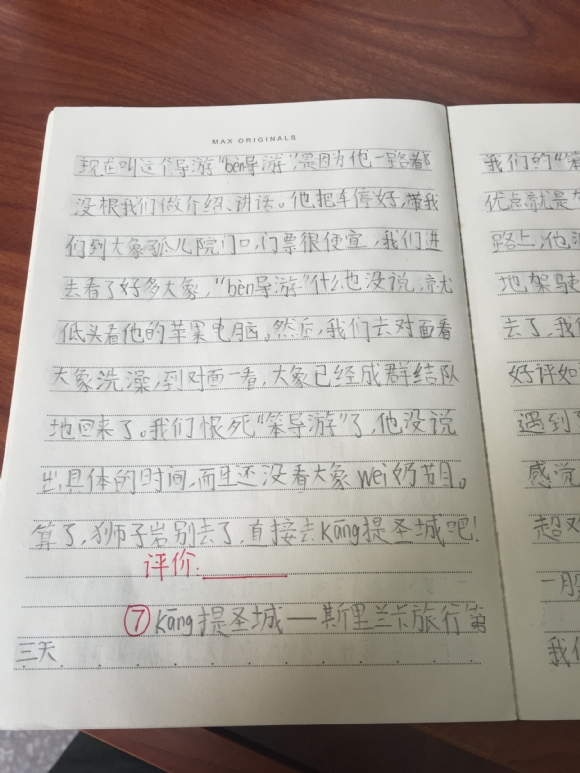 MAX ORIGINALS
现在叫这个导游“bèn导游”,是因为他一路都
没根我们做介绍、讲话。他把车停好,带我
们到大象孤儿院门口,门票很便宜,我们进
去看了好多大象,“bèn导游”什么也没说,就
低头看他的苹果电脑。然后,我们去对面看
大象洗澡,到对面一看,大象已经成群结队
地回来了。我们恨死“笨导游”了,他没说
出具体的时间,而且还没看大象wei奶节目。
算了,狮子岩别去了,直接去Kāng提圣城吧!
评价:
⑦Kāng提圣城——斯里兰卡旅行第
三天
我们的“笨
优点就是
路上,他
地,驾驶
去了,我们
好评如
遇到
感觉
超
一月
我们